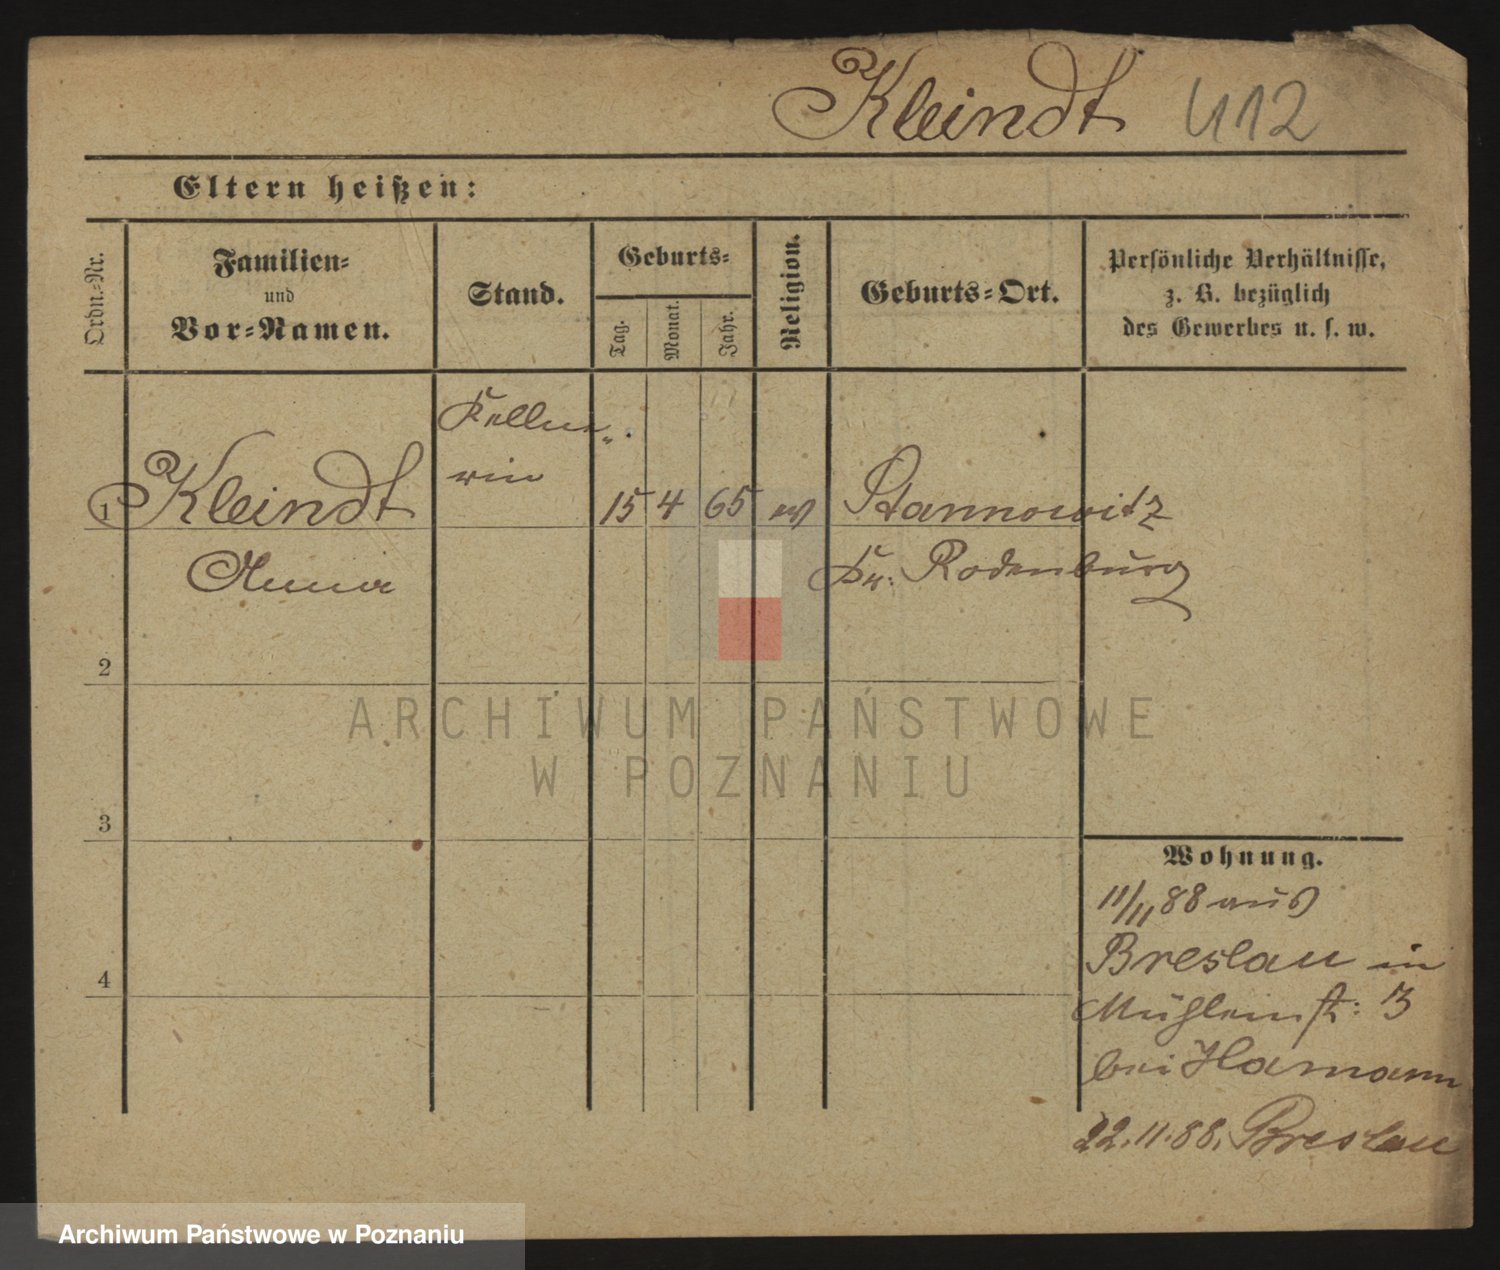 Kleindt 412
Eltern heißen:
Ordn.-Nr.
Familien-
und
Vor-Namen.
Stand.
Geburts-
Tag.
Monat.
Jahr.
Religion.
Geburts-Ort.
Persönliche Verhältnisse,
z. B. bezüglich
des Gewerbes u. s. w.
Kellne-
rin
1 Kleindt 15 4 65 ev Stannowitz
Anna Kr. Rodenburg
2
3
4
Wohnung.
11/11 88 aus
Breslau in
Mühlenst: 3
bei Hamann
22.11.88. Breslau
ARCHIWUM PAŃSTWOWE
W POZNANIU
Archiwum Państwowe w Poznaniu